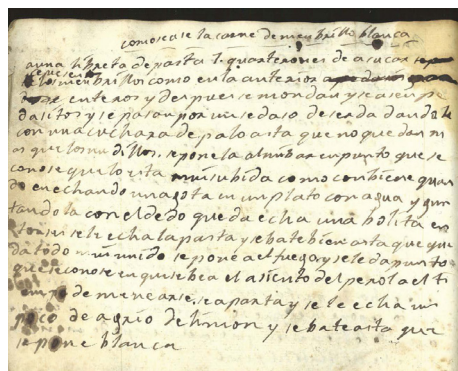 como se ase la carne de menbrillo blanca
a una libreta de pasta 5 quarterones de asucar se
cuesen los menbrillos como en la anterior
enteros y despues se mondan y se asen pe
dasitos y se pasan por un sedaso de serda dandole
con una cuchara de palo asta que no quedan m
as que los nudillos. se pone la almibar en punto que se
conose que lo esta mui subida como conbiene quan
do en echando una gota en un plato con agua y qun
tando la con el dedo queda echa una bolita en
tonses se le echa la pasta y se bate bien asta que que
da todo mui unido se pone a el fuego y se le da punto
que se conose en que se bea el asiento del perol a el t
iempo de menearse. se aparta y se le echa un
poco de agrio de limon y se bate asta que
se pone blanca